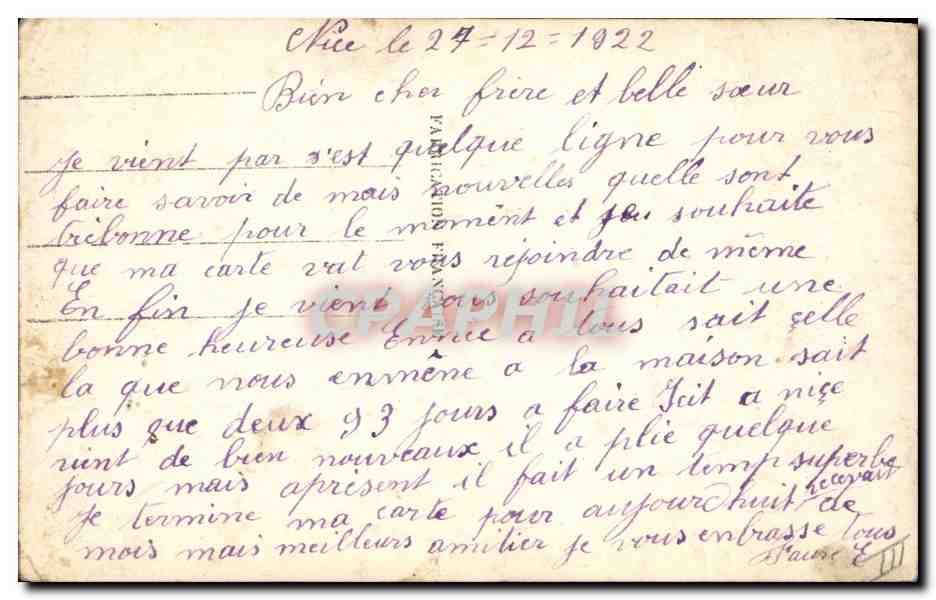 Nice le 27=12=1922
Bien cher frère et belle sœur
Je vient par s'est quelque ligne pour vous
faire savoir de mais nouvelles quelle sont
trebonne pour le momênt et souhaite
que ma carte vat vous rejoindre de même
En fin je vient vous souhaitait une
bonne heureuse Ennee a tous sait çelle
la que nous enmêne a la maison sait
plus que deux 93 jours a faire Icit a niçe
rient de bien nouveaux il a plie quelque
jours mais aprésent il fait un temp superbe
Je termine ma carte pour aujourdhuit recevait de
mois mais meilleurs amitier je vous enbrasse tous
Faure E
III
FABRICATION FRANÇAISE
CPAPHIL